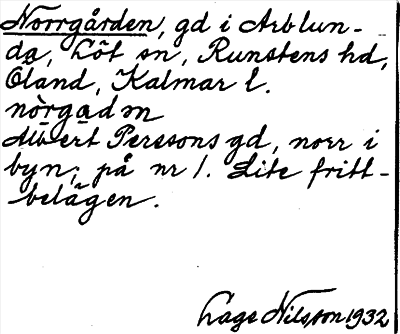 Norrgården, gd i Arblun-
da, Löt sn, Runstens hd,
Öland, Kalmar l.
nòrgadm
Albert Perssons gd, norr i
byn, på nr 1. Lite fritt-
belägen.
Lage Nilsson 1932